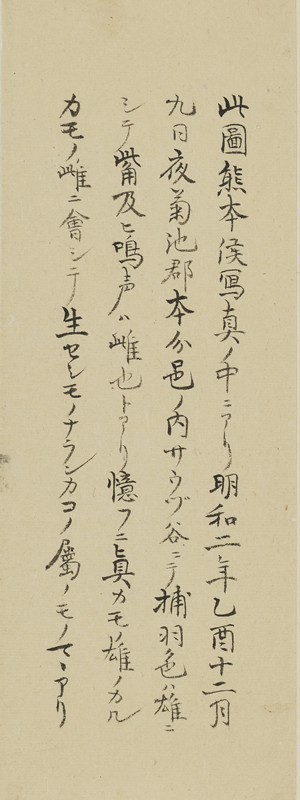 此圖熊本侯寫真ノ中ニアリ明和二年乙酉十二月
九日夜菊池郡本分邑ノ内サウヅ谷ニテ捕羽色ハ雄ニ
シテ觜及ヒ鳴声ハ雌也トアリ憶フニ真カモノ雄ノカル
カモノ雌ニ會シテ生セシモノナランカコノ屬ノモノマヽアリ